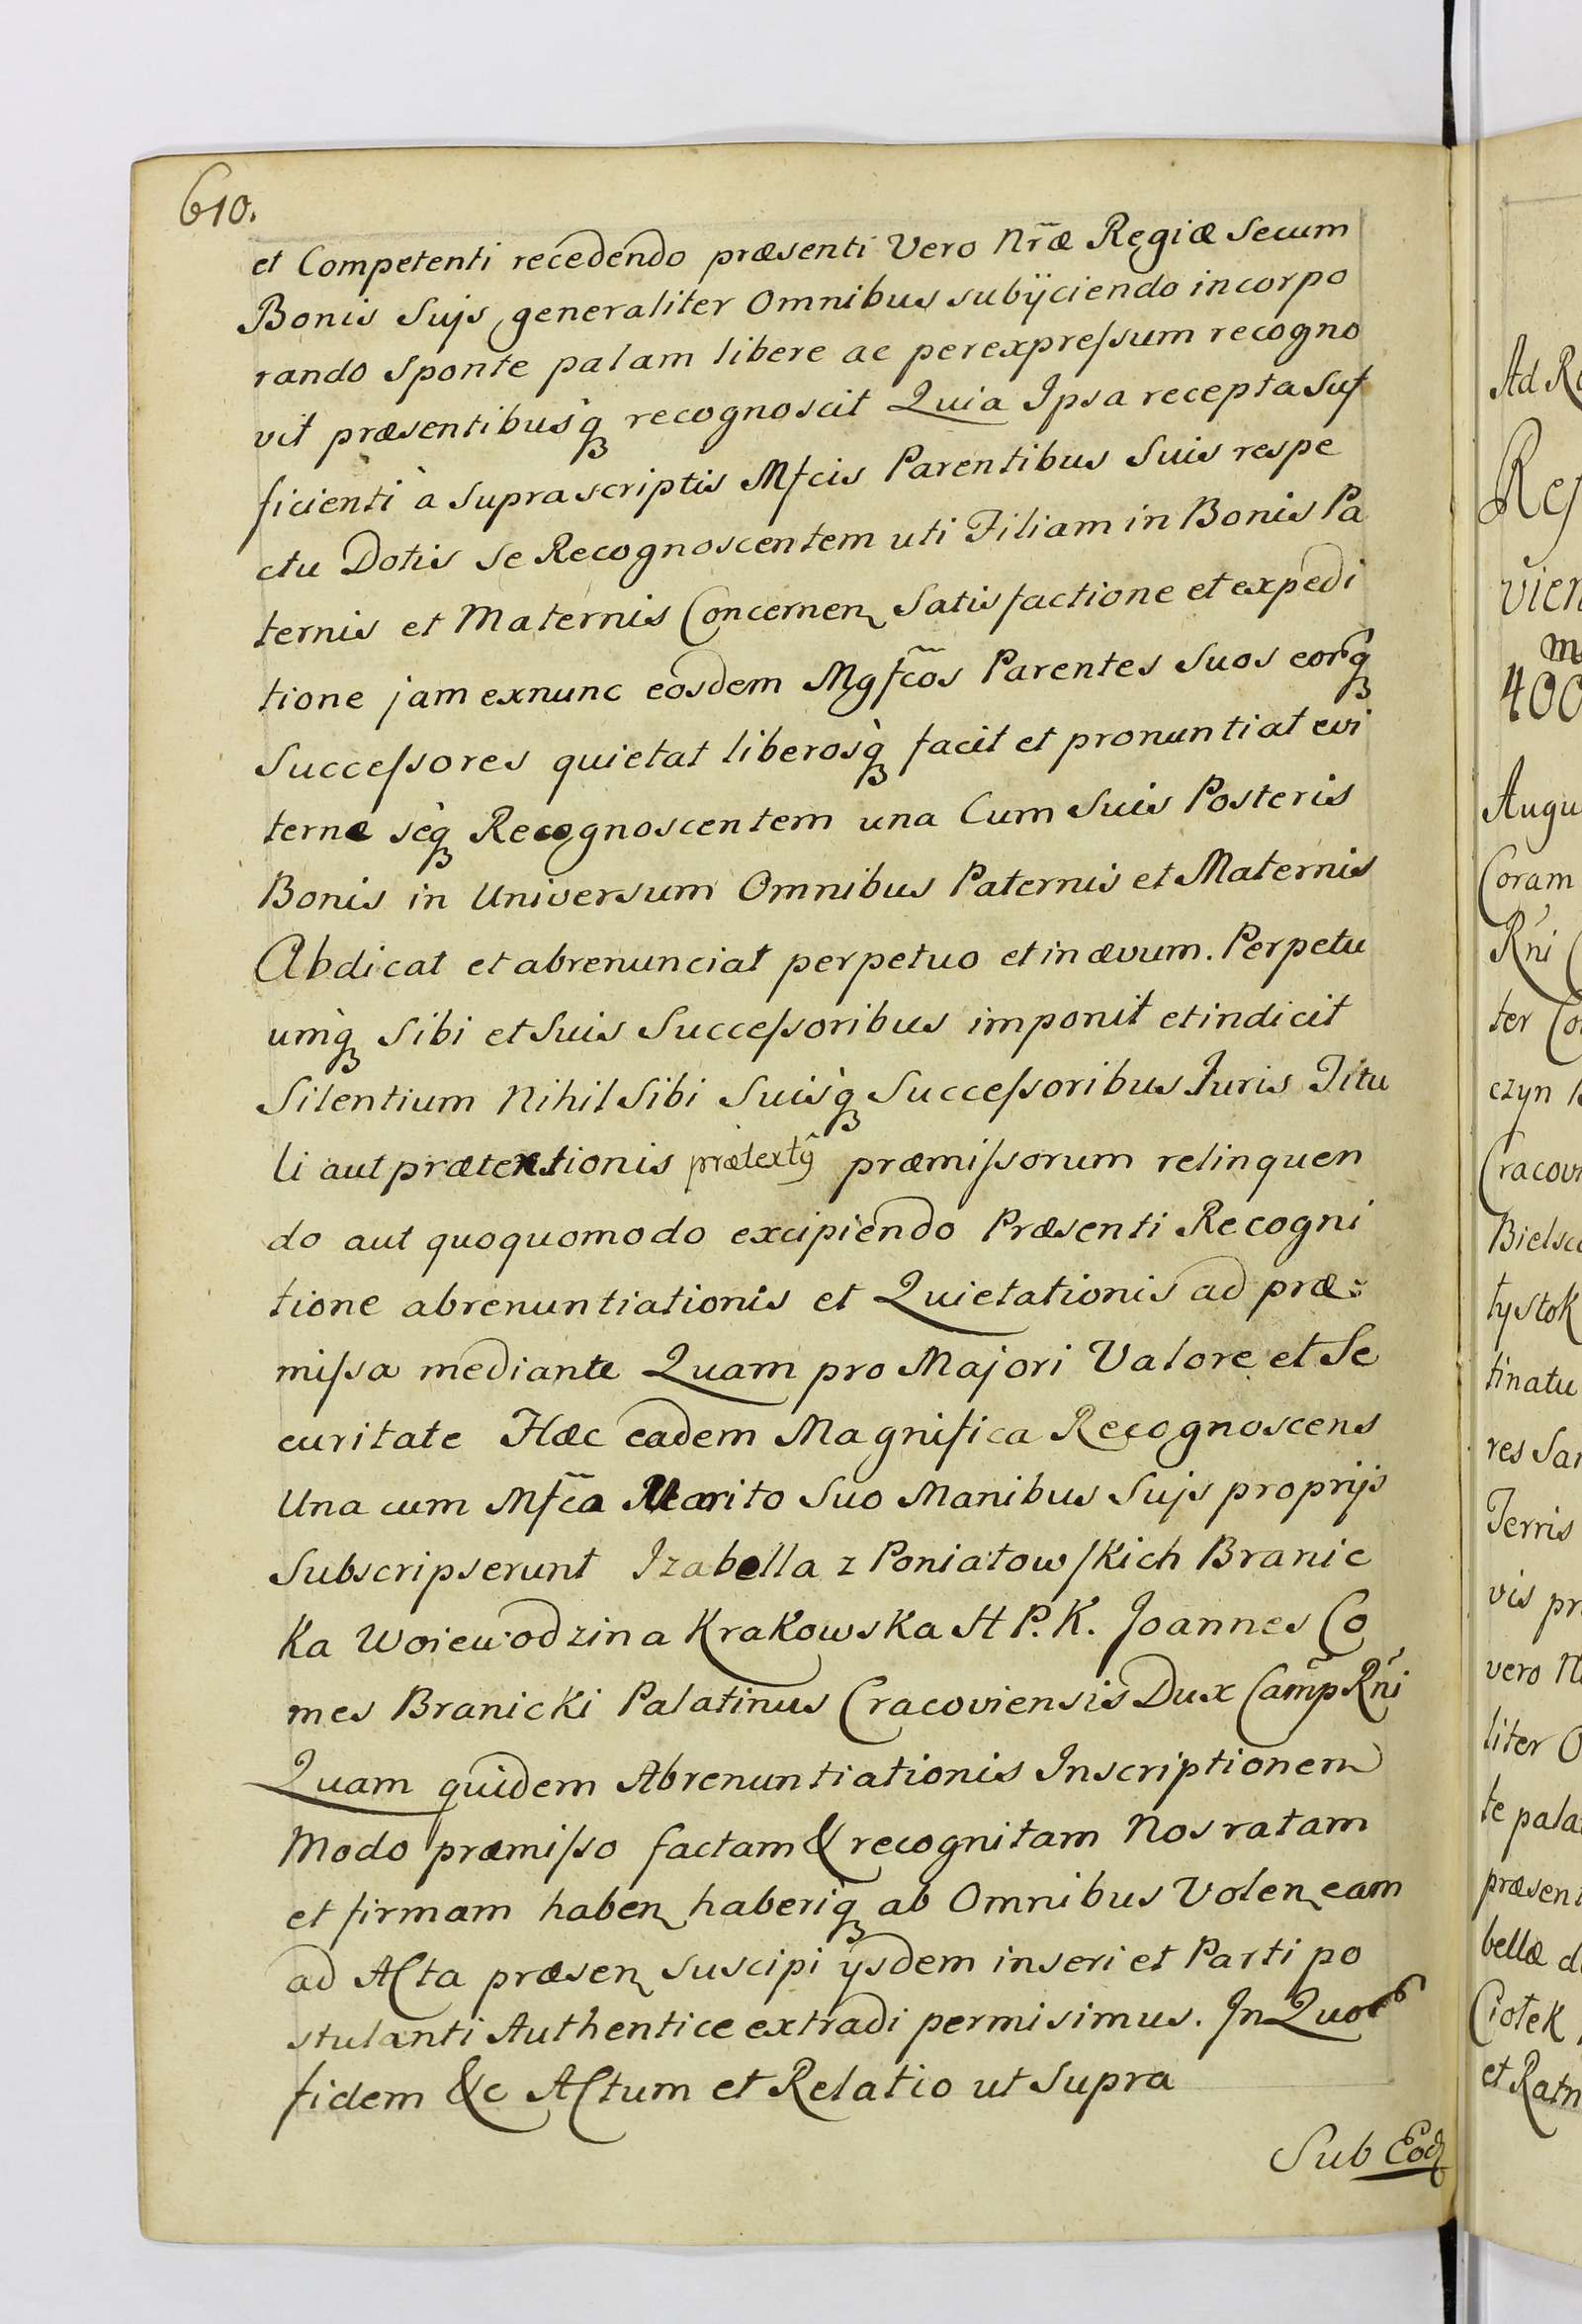 610.
et Competenti recedendo præsenti Vero Nr̃æ Regiæ Secum
Bonis Suÿs generaliter Omnibus subÿciendo incorpo
rando Sponte palam libere ac perexpreſsum recogno
vit præsentibusq́ recognoscit Quia Ipsa recepta Suf
ficienti à Suprascriptis Mfcis Parentibus Suis respe
ctu Dotis Se Recognoscentem uti Filiam in Bonis Pa
ternis et Maternis Concernen Satisfactione et expedi
tione jam exnunc eosdem Mgfc̃os Parentes Suos eorq́
Succeſsores quietat liberosq́ facit et pronuntiat evi
terne seq́ Recognoscentem una Cum Suis Posteris
Bonis in Universum Omnibus Paternis et Maternis
Abdicat et abrenunciat perpetuo et in ævum. Perpetu
umq́ Sibi et Suis Succeſsoribus imponit et indicit
Silentium Nihil Sibi Suisq́ Succeſsoribus Juris Titu
li aut prætentionis prætextũ præmiſsorum relinquen
do aut quoquomodo excipiendo Præsenti Recogni
tione abrenuntiationis et Quietationis ad præ:
miſsa mediante Quam pro Majori Valore et Se
curitate Hæc eadem Magnifica Recognoscens
Una cum Mfc̃a Marito Suo Manibus Suÿs proprÿs
Subscripserunt Izabella z Poniatowſkich Branic
Ka Woiewodzina Krakowska H P. K. Joannes Co
mes Branicki Palatinus Cracoviensis Dux Cam̃p Rñi
Quam quidem Abrenuntiationis Inscriptionem
Modo præmiſso factam & recognitam Nos ratam
et firmam haben haberiq́ ab Omnibus Volen eam
ad Acta præsen suscipi ÿsdem inseri et Parti po
stulanti Authentice extradi permisimus. In Quor̃
fidem &c Actum et Relatio ut Supra
Sub Eod
Ad R
Reſ
vien
m
400
Augu
Coram
Rñi
ter Co
czyn
Cracov
Bielsc
tystok
tinatu
res Sa
Terris
vis pr
vero N
liter O
te pala
præsen
bellæ d
Ciotek
et Ratn